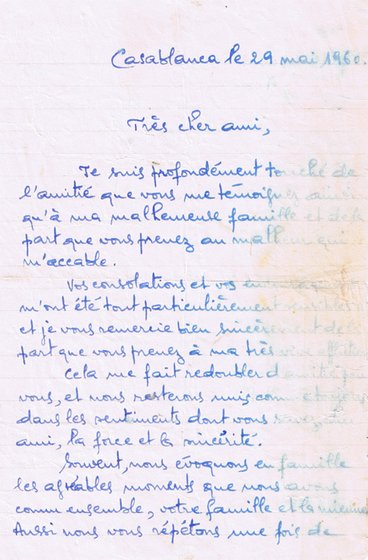 Casablanca le 29 mai 1960.
Très cher ami,
Je suis profondément touché de
l'amitié que vous me témoignez ainsi
qu'à ma malheureuse famille et de la
part que vous prenez au malheur qui
m'accable.
Vos consolations et vos
m'ont été tout particulièrement
et je vous remercie bien sincèrement de la
part que vous prenez à ma très vive
Cela me fait redoubler d'amitié pour
vous, et nous resterons unis comme toujours
dans les sentiments dont vous
ami, la force et la sincérité.
Souvent, nous évoquons en famille
les agréables moments que nous avons
connu ensemble, votre famille et la mienne
Aussi nous vous répétons une fois de